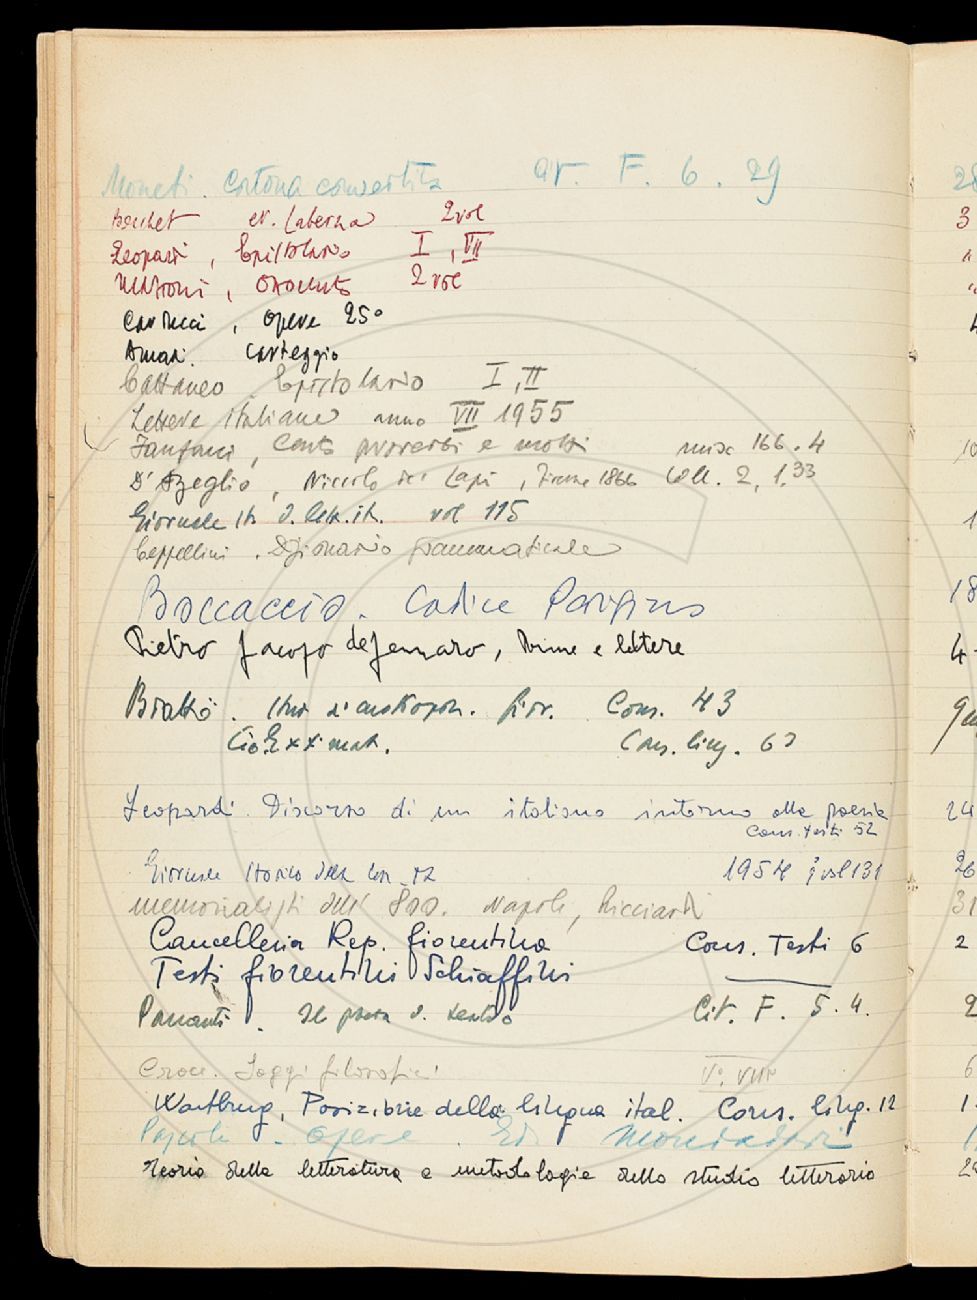 Moneti. Cortona convertita Cit. F. 6. 29
Berchet ed. Laterza 2 vol
Leopardi, Epistolario I, VII
Manzoni, 2 vol
Carducci, Opere 25°
Amari. Carteggio
Cattaneo Epistolario I, II
Lettere italiane anno VII 1955
Fanfani, Cento proverbi e motti misc 166.4
D'Azeglio, Niccolò de' Lapi, Firenze 1866 Coll. 2, 1, 33
Giornale st. d. lett. it. vol 115
Ceppellini. Dizionario grammaticale
Boccaccio. Codice Parigino
Pietro Jacopo de Jennaro, Rime e lettere
fior. Cons. 43
Cons. ling. 63
Leopardi. Discorso di un italiano intorno alla poesia
Cons. Testi 52
Giornale storico della lett. it. 1954 vol 131
memorialisti dell' 800. Napoli, Ricciardi
Cancelleria Rep. fiorentina Cons. Testi 6
Testi fiorentini Schiaffini
Pananti. Il poeta d. teatro Cit. F. 5. 4.
Croce. Saggi filosofici V° VIII°
Wartburg, Posizione della lingua ital. Cons. ling. 12
Pascoli. Opere. Ed. Mondadori
Teoria della letteratura e metodologie dello studio letterario